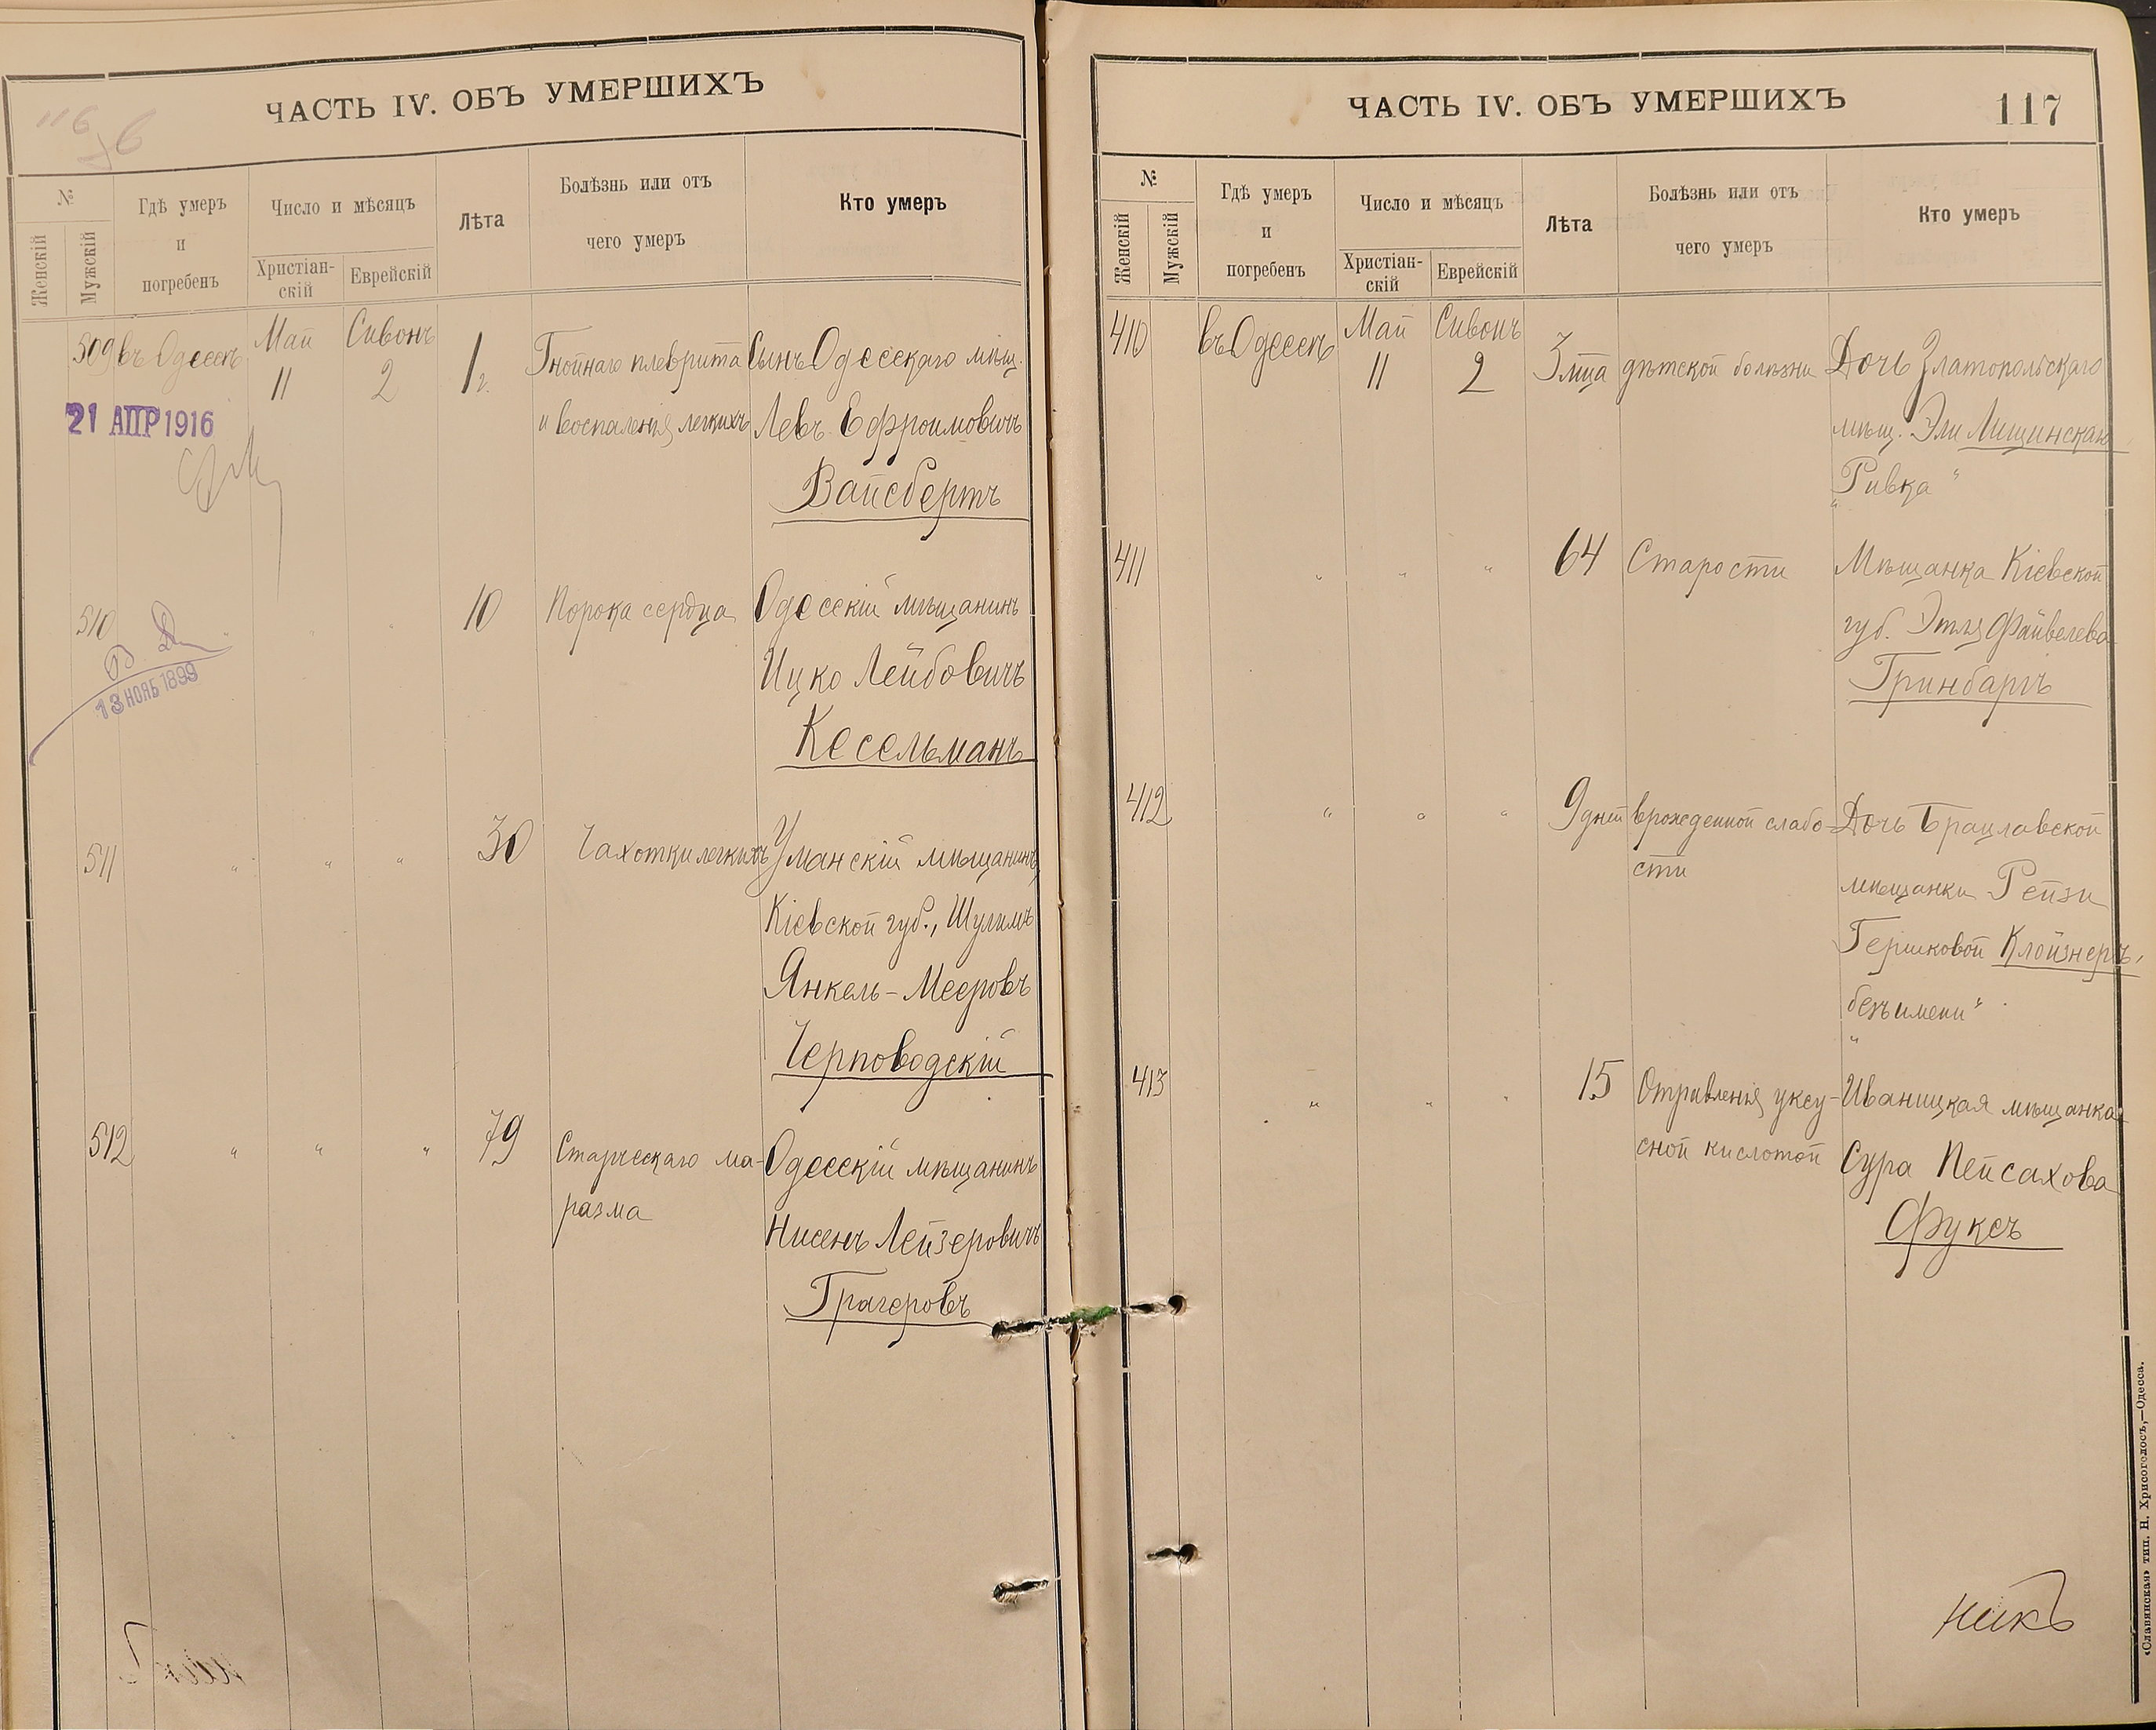 116
ЧАСТЬ IV. ОБЪ УМЕРШИХЪ
№
Женскій
Мужскій
Гдѣ умеръ
и
погребенъ
Число и мѣсяцъ
Христіан-
скій
Еврейскій
Лѣта
Болѣзнь или отъ
чего умеръ
Кто умеръ
509 въ Одессѣ Май 11 Сивонъ 2 1 г. Гнойнаго плеврита Сынъ Одесскаго мѣщ.
и воспаленія легкихъ Левъ Ефроимовичъ
Вайсбертъ
21 АПР 1916
510 " " " 10 Порока сердца Одесскій мѣщанинъ
Ицко Лейбовичъ
Кесельманъ
13 НОЯБ 1899
511 " " " 30 Чахотки легкихъ Уманскій мѣщанинъ,
Кіевской губ., Шулимъ
Янкель-Мееровъ
Черповодскій
512 " " " 79 Старческаго ма- Одесскій мѣщанинъ
разма Нисенъ Лейзеровичъ
Трагеровъ
ЧАСТЬ IV. ОБЪ УМЕРШИХЪ
117
№
Женскій
Мужскій
Гдѣ умеръ
и
погребенъ
Число и мѣсяцъ
Христіан-
скій
Еврейскій
Лѣта
Болѣзнь или отъ
чего умеръ
Кто умеръ
410 въ Одессѣ Май 11 Сивонъ 2 3 мца дѣтской болѣзни Дочь Златопольскаго
мѣщ. Эли Лищинскаго
"Ривка"
411 " " " 64 Старости Мѣщанка Кіевской
губ. Этля Файвелева
Гринбаргъ
412 " " " 9 дней врожденной слабо- Дочь Брацлавской
сти мѣщанки Рейзи
Гершковой Клойзнеръ,
"безъ имени"
413 " " " 15 Отравленія уксу- Иваницкая мѣщанка
сной кислотой Сура Пейсахова
Фуксъ
никъ
«Славянская» тип. Н. Хрисогелосъ,—Одесса.